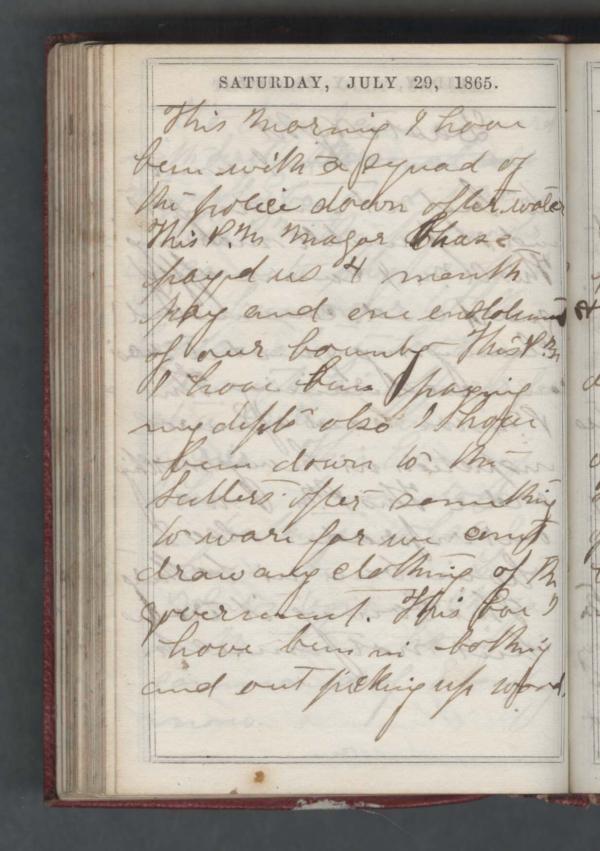 SATURDAY, JULY 29, 1865.
This Morning I have
ben with a squad of
the police down after water
This P.M. Magor Chase
payd us 4 month
pay and one enstolment
of our bounty This P.M
I have ben paying
my depts also I have
ben down to the
Sutlers after something
to ware for we cant
draw any clothing of the
goverment. This Eve I
have ben in bathing
and out picking up wood.